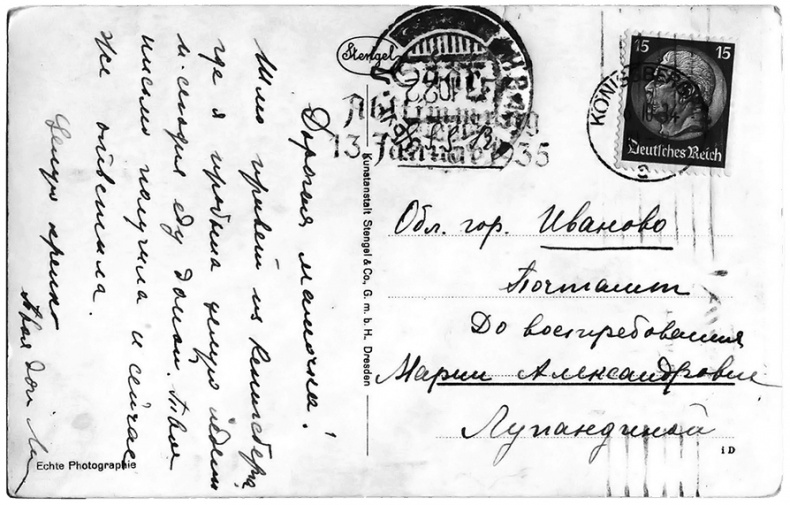 Дорогая мамочка!
Шлю привет из Кенигсберга,
где я пробыла целую неделю
и сегодня еду домой. Твое
письмо получила и сейчас
же ответила.
Целую крепко
Твоя
Stengel
Kunstanstalt Stengel & Co., G. m. b. H. Dresden
Echte Photographie
15 15
Deutsches Reich
Abstimmung
13. Januar 1935
Обл. гор. Иваново
Почтамт
До востребования
Марии Александровне
Лупандиной
1 D